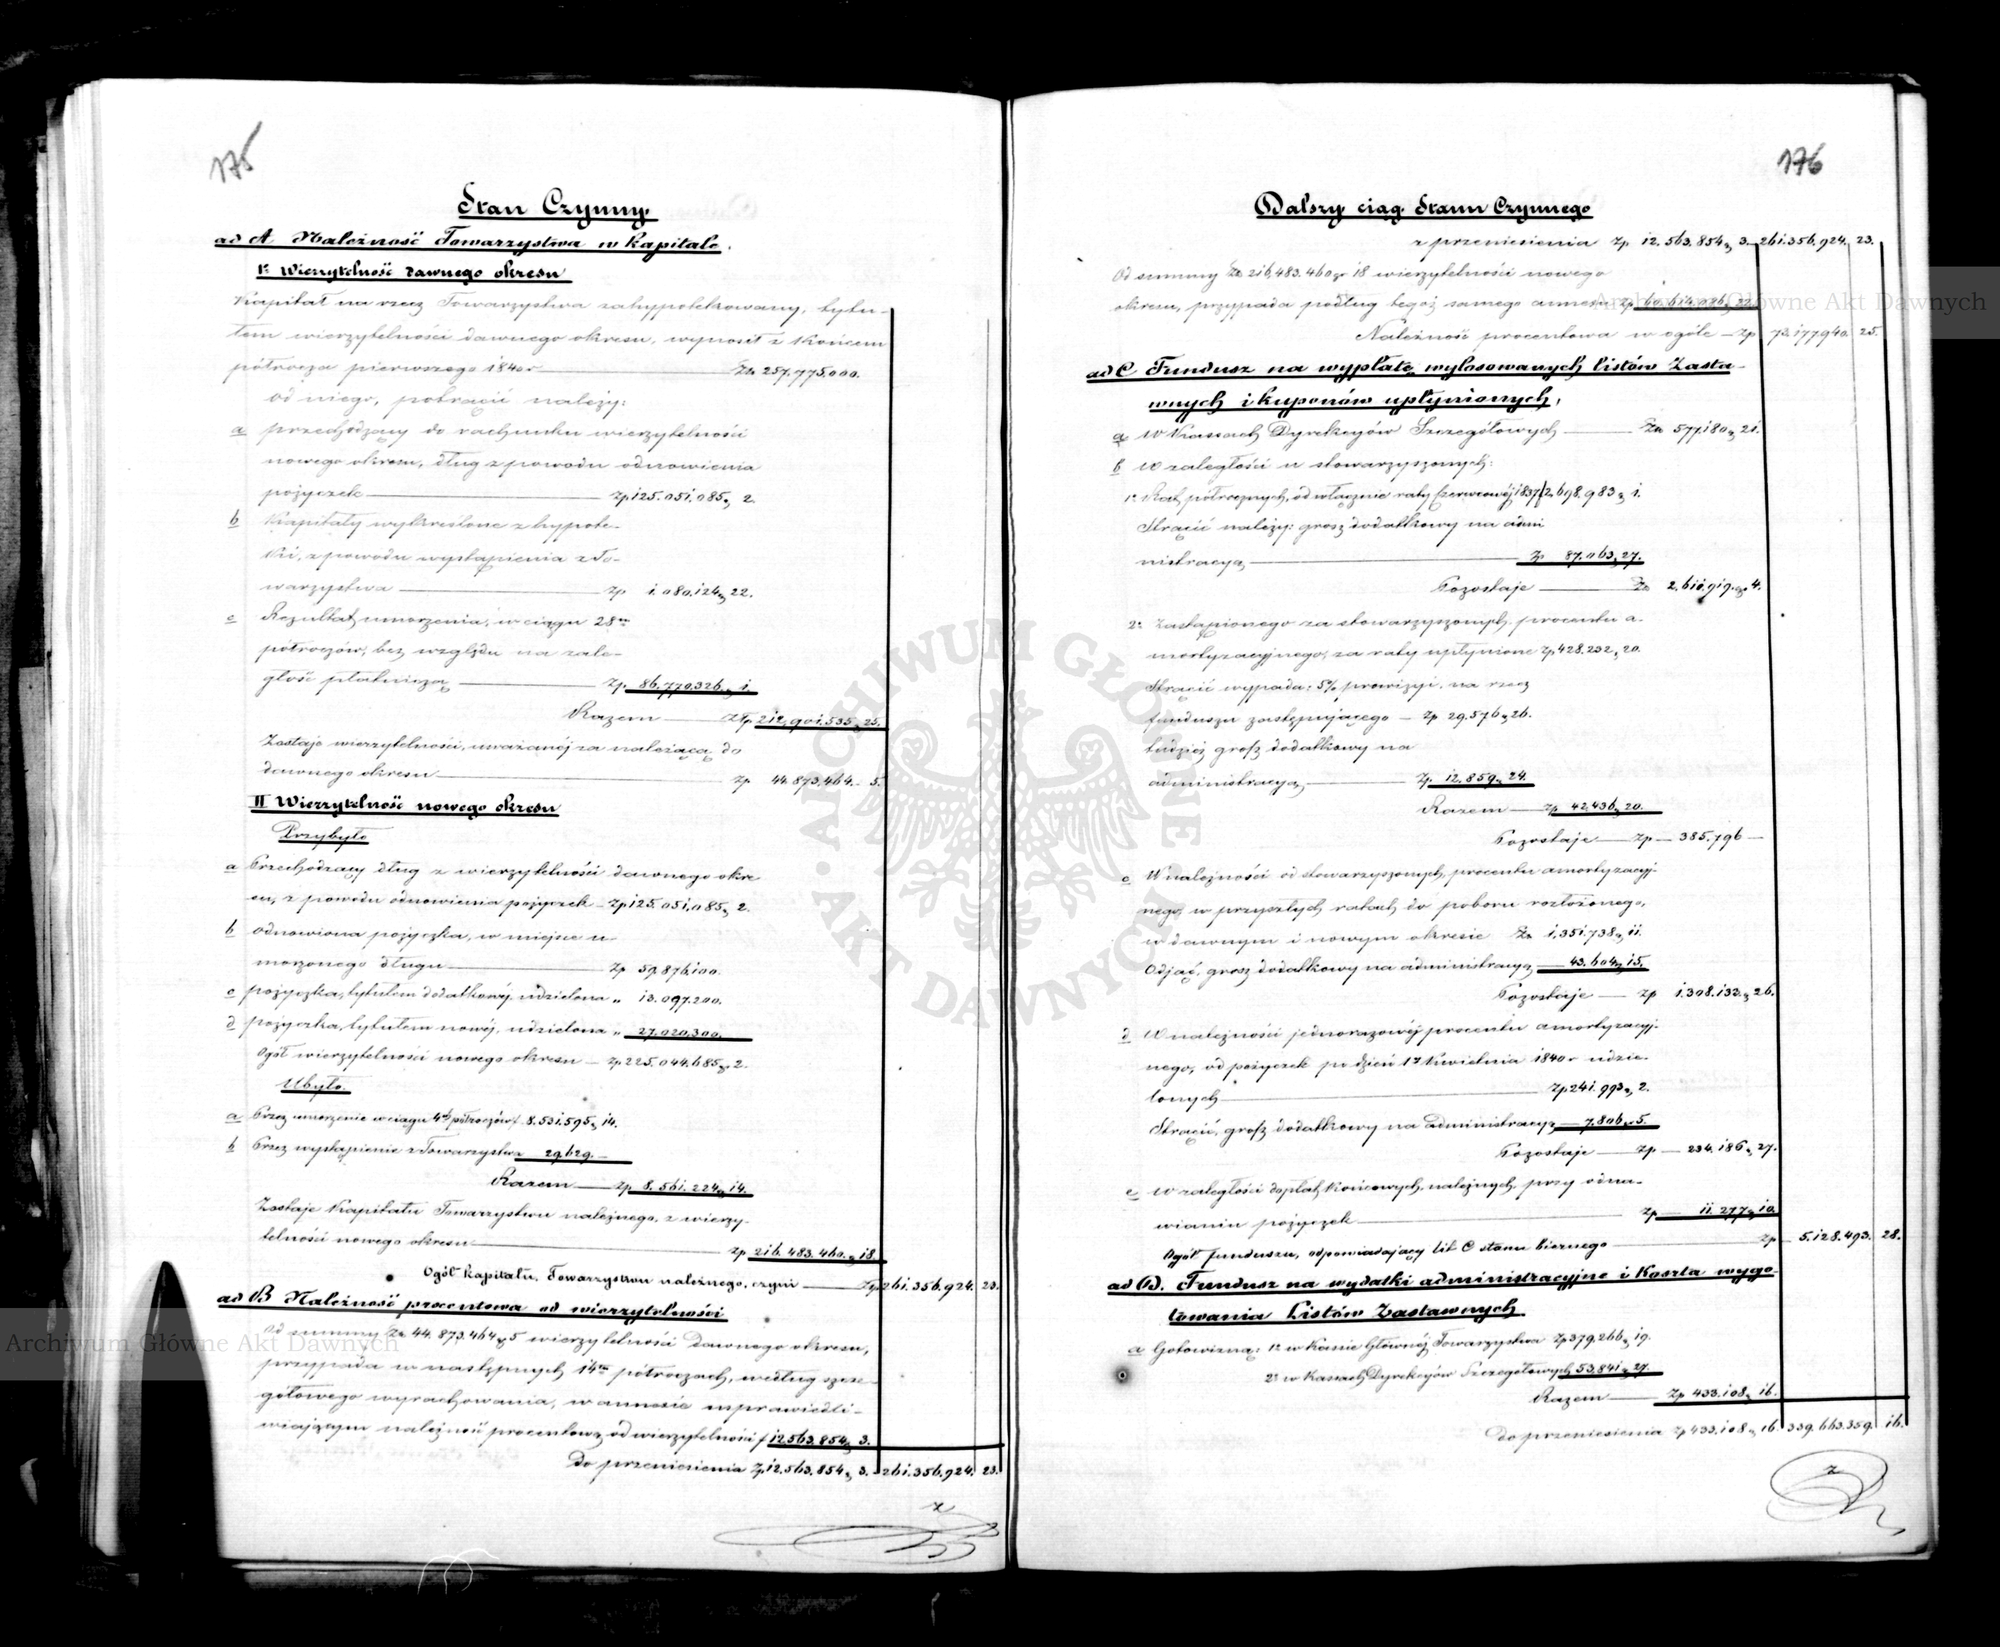 175
Stan Czynny.
ad A Należność Towarzystwa w Kapitale.
1o Wierzytelność dawnego okresu
Kapitał na rzecz Towarzystwa zahypotekowany, tytu-
łem wierzytelności dawnego okresu, wynosił z końcem
półrocza pierwszego 1840 r Zp 257.775.000.
od niego, potrącić należy:
a przechodzący do rachunku wierzytelności
nowego okresu, dług z powodu odnowienia
pożyczek Zp 125.051.085 „ 2.
b Kapitały wykreślone z hypote-
ki, z powodu wystąpienia z To-
warzystwa Zp 1.080.124 „ 22.
c Rezultat umorzenia, w ciągu 28u
półroczów, bez względu na zale-
głość płatniczą Zp. 86.770.326. „ 1.
Razem Zp 212.901.535 „ 25.
Zostaje wierzytelności, uważanéj za należącą do
dawnego okresu Zp 44.873.464. 5.
II Wierzytelność nowego okresu
Przybyło
a Przechodzący dług z wierzytelności dawnego okre
su, z powodu odnowienia pożyczek Zp 125.051.085 „ 2.
b odnowiona pożyczka, w miejsce u-
morzonego długu Zp 59.876.100.
c pożyczka, tytułem dodatkowéj, udzielona „ 13.097.200.
d pożyczka, tytułem nowéj, udzielona „ 27.020.300.
Ogół wierzytelności nowego okresu Zp 225.044.685 „ 2.
Ubyło.
a Przez umorzenie w ciągu 4ch półroczów 8.531.595 „ 14.
b Przez wystąpienie z Towarzystwa 29.629. —
Razem Zp 8.561.224 „ 14.
Zostaje Kapitału Towarzystwu należnego, z wierzy-
telności nowego okresu Zp 216.483.460. „ 18
Ogół kapitału, Towarzystwu należnego, czyni Zp 261.356.924. 23.
ad B Należność procentowa od wierzytelności
Od summy Zp 44.873.464 „ 5 wierzytelności dawnego okresu,
przypada w następnych 14tu półroczach, według szcze-
gółowego wyrachowania, w annexie usprawiedli-
wiającym należność procentową od wierzytelności 12.563.854 „ 3.
Do przeniesienia Zp 12.563.854 „ 3. 261.356.924. 23.
176
Dalszy ciąg Stanu Czynnego
z przeniesienia Zp 12.563.854 „ 3. 261.356.924. 23.
Od summy Zp 216,483.460 gr 18 wierzytelności nowego
okresu, przypada podług tegoż samego annexu Zp 60.614.086 „ 22
Należność procentowa w ogóle Zp 73.177.940. 25.
ad C Fundusz na wypłatę wylosowanych listów Zasta-
wnych i kuponów upłynionych,
a W Kassach Dyrekcyów Szczegółowych Zp 577.180 „ 21.
b W zaległości u stowarzyszonych:
1o Rat półrocznych, od włącznie raty Czerwcowéj 1837 2.698.983 „ 1.
Strącić należy: grosz dodatkowy na admi
nistracyą Zp 87.063 „ 27.
Pozostaje Zp 2.611.919. „ 4.
2o Zastąpionego za stowarzyszonych, procentu a-
mortyzacyjnego, za raty upłynione Zp 428.232 „ 20.
Strącić wypada: 5% prowizyi, na rzecz
funduszu zastępującego — Zp 29.576 „ 26.
tudzież grosz dodatkowy na
administracyą Zp. 12.859 „ 24.
Razem Zp 42.436 „ 20.
Pozostaje Zp — 385.796 —
c W należności od stowarzyszonych, procentu amortyzacyj-
nego, w przyszłych ratach do poboru rozłożonego,
w dawnym i nowym okresie Zp 1.351.738 „ 11.
Odjąć, grosz dodatkowy na administracyą 43.604 „ 15.
Pozostaje Zp 1.308.133 „ 26.
d W należności jednorazowéj procentu amortyzacyj-
nego, od pożyczek po dzień 17 Kwietnia 1840 r udzie-
lonych Zp 241.993 „ 2.
Strącić, grosz dodatkowy na administracyą 7.806 „ 5.
Pozostaje Zp — 234.186 „ 27.
e W zaległości dopłat Końcowych, należnych, przy odna-
wianiu pożyczek Zp 11.277 „ 10.
Ogół funduszu, odpowiadający lit C stanu biernego Zp 5.128.493. 28.
ad D. Fundusz na wydatki administracyjne i Koszta wygo-
towania Listów Zastawnych
a Gotowizną: 1o w Kassie Głównéj Towarzystwa Zp 379.266 „ 19.
2o w Kassach Dyrekcyów Szczegółowych 53.841 „ 27.
Razem Zp 433.108 „ 16.
Do przeniesienia Zp 433.108 „ 16. 339.663.359. 16.
ARCHIWUM GŁÓWNE AKT DAWNYCH
Archiwum Główne Akt Dawnych
Archiwum Główne Akt Dawnych